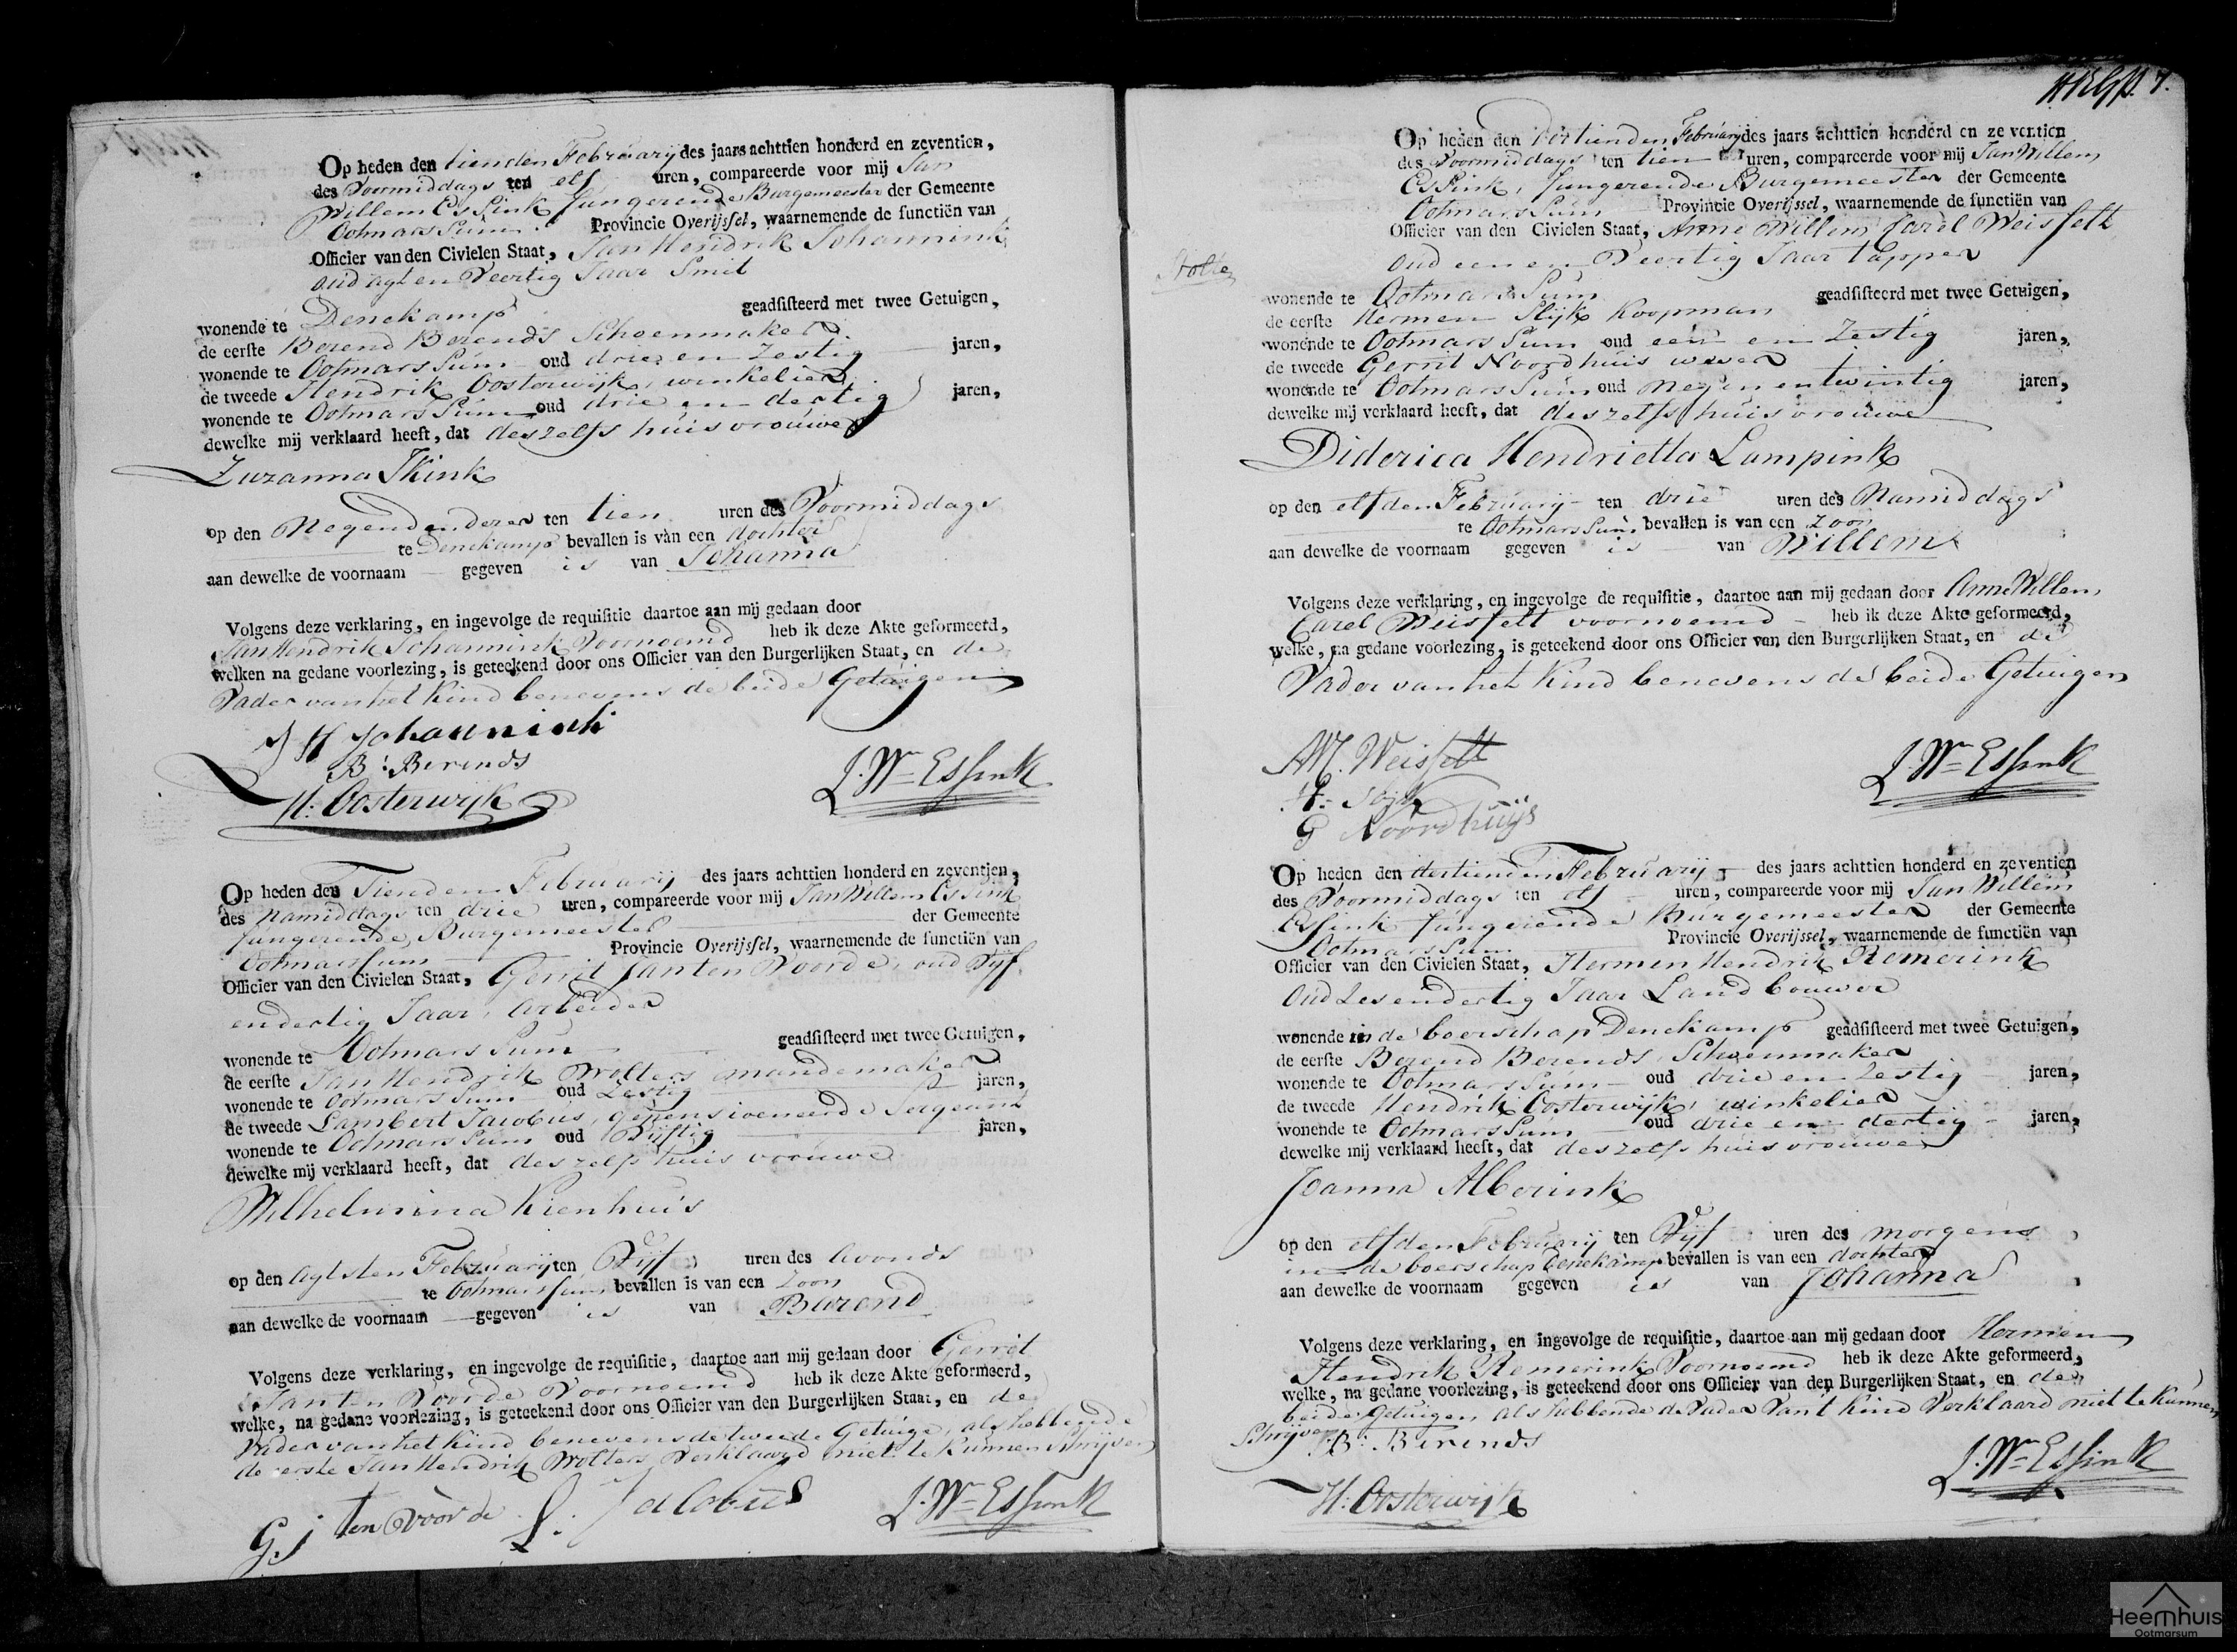 Op heden den tienden Februarij des jaars achttien honderd en zeventien,
des Voormiddags ten elf uren, compareerde voor mij Jan
Willem Essink fungerende Burgemeester der Gemeente
Ootmarssum Provincie Overijssel, waarnemende de functiën van
Officier van den Civielen Staat, Jan Hendrik Johannink
oud agt en Veertig Jaar Smit
wonende te Denekamp geadsisteerd met twee Getuigen,
de eerste Berend Berends Schoenmaker
wonende te Ootmarssum oud drie en Zestig jaren,
de tweede Hendrik Oosterwijk, winkelier
wonende te Ootmarssum oud drie en dertig jaren,
dewelke mij verklaard heeft, dat deszelfs huisvrouwe
Zuzanna Ikink
op den Negenden dezer ten tien uren des Voormiddags
te Denekamp bevallen is van een dochter
aan dewelke de voornaam gegeven is van Johanna
Volgens deze verklaring, en ingevolge de requisitie daartoe aan mij gedaan door
Jan Hendrik Johannink Voornoemd heb ik deze Akte geformeerd,
welken na gedane voorlezing, is geteekend door ons Officier van den Burgerlijken Staat, en de
Vader van het Kind benevens de beide Getuigen
J H Johannink
B: Berends
H: Oosterwijk
J. Wm Essink
Op heden den Tienden Februarij des jaars achttien honderd en zeventien,
des Namiddags ten drie uren, compareerde voor mij Jan Willem Essink
fungerende Burgemeester der Gemeente
Ootmarssum Provincie Overijssel, waarnemende de functiën van
Officier van den Civielen Staat, Gerrit Jan ten Voorde, oud Vijf
en dertig Jaar, Arbeider
wonende te Ootmarssum geadsisteerd met twee Getuigen,
de eerste Jan Hendrik Wolters mandemaker
wonende te Ootmarssum oud Zestig jaren,
de tweede Lambert Jacobus, gepensioeneerde Sergeant
wonende te Ootmarssum oud Vijftig jaren,
dewelke mij verklaard heeft, dat deszelfs huisvrouwe
Wilhelmina Kienhuis
op den Agtsten Februarij ten Vijf uren des Avonds
te Ootmarssum bevallen is van een Zoon
aan dewelke de voornaam gegeven is van Barend
Volgens deze verklaring, en ingevolge de requisitie, daartoe aan mij gedaan door Gerrit
Jan ten Voorde Voornoemd heb ik deze Akte geformeerd,
welke, na gedane voorlezing, is geteekend door ons Officier van den Burgerlijken Staat, en de
Vader van het Kind benevens de tweede Getuige, als hebbende
de eerste Jan Hendrik Wolters Verklaard niet te Kunnen Schrijven
G. J ten Voorde
L: Jacobus
J. Wm Essink
7.
Op heden den Dertienden Februarij des jaars achttien honderd en zeventien
des Voormiddags ten tien uren, compareerde voor mij Jan Willem
Essink, fungerende Burgemeester der Gemeente
Ootmarssum Provincie Overijssel, waarnemende de functiën van
Officier van den Civielen Staat, Anne Willem Carel Weisfelt
oud een en Veertig Jaar tapper
wonende te Ootmarssum geadsisteerd met twee Getuigen,
de eerste Hermen Slijk Koopman
wonende te Ootmarssum oud een en Zestig jaren,
de tweede Gerrit Noordhuis wever
wonende te Ootmarssum oud Negen en twintig jaren,
dewelke mij verklaard heeft, dat deszelfs huisvrouwe
Diderica Hendrietta Lampink
op den elfden Februarij ten drie uren des Namiddags
te Ootmarssum bevallen is van een Zoon
aan dewelke de voornaam gegeven is van Willem
Volgens deze verklaring, en ingevolge de requisitie, daartoe aan mij gedaan door Anne Willem
Carel Weisfelt voornoemd heb ik deze Akte geformeerd,
welke, na gedane voorlezing, is geteekend door ons Officier van den Burgerlijken Staat, en de
Vader van het Kind benevens de beide Getuigen
Weisfelt
G Noordhuijs
J. Wm Essink
Op heden den dertienden Februarij des jaars achttien honderd en zeventien
des Voormiddags ten elf uren, compareerde voor mij Jan Willem
Essink fungerende Burgemeester der Gemeente
Ootmarssum Provincie Overijssel, waarnemende de functiën van
Officier van den Civielen Staat, Hermen Hendrik Remerink
Oud Zes en dertig Jaar Landbouwer
wonende in de boerschap Denekamp geadsisteerd met twee Getuigen,
de eerste Berend Berends, Schoenmaker
wonende te Ootmarssum oud drie en Zestig jaren,
de tweede Hendrik Oosterwijk, winkelier
wonende te Ootmarssum oud drie en dertig jaren,
dewelke mij verklaard heeft, dat deszelfs huisvrouwe
Joanna Alberink
op den elfden Februarij ten Vijf uren des morgens
in de boerschap Denekamp bevallen is van een dochter
aan dewelke de voornaam gegeven is van Johanna
Volgens deze verklaring, en ingevolge de requisitie, daartoe aan mij gedaan door Hermen
Hendrik Remerink Voornoemd heb ik deze Akte geformeerd,
welke, na gedane voorlezing, is geteekend door ons Officier van den Burgerlijken Staat, en de
beide Getuigen als hebbende de Vader Van't Kind Verklaard niet te Kunnen
Schrijven
B: Berends
H: Oosterwijk
J. Wm Essink
Heemhuis
Ootmarsum